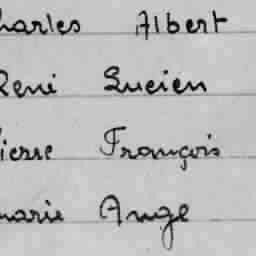 harles Albert
René Lucien
ierre François
marie Ange